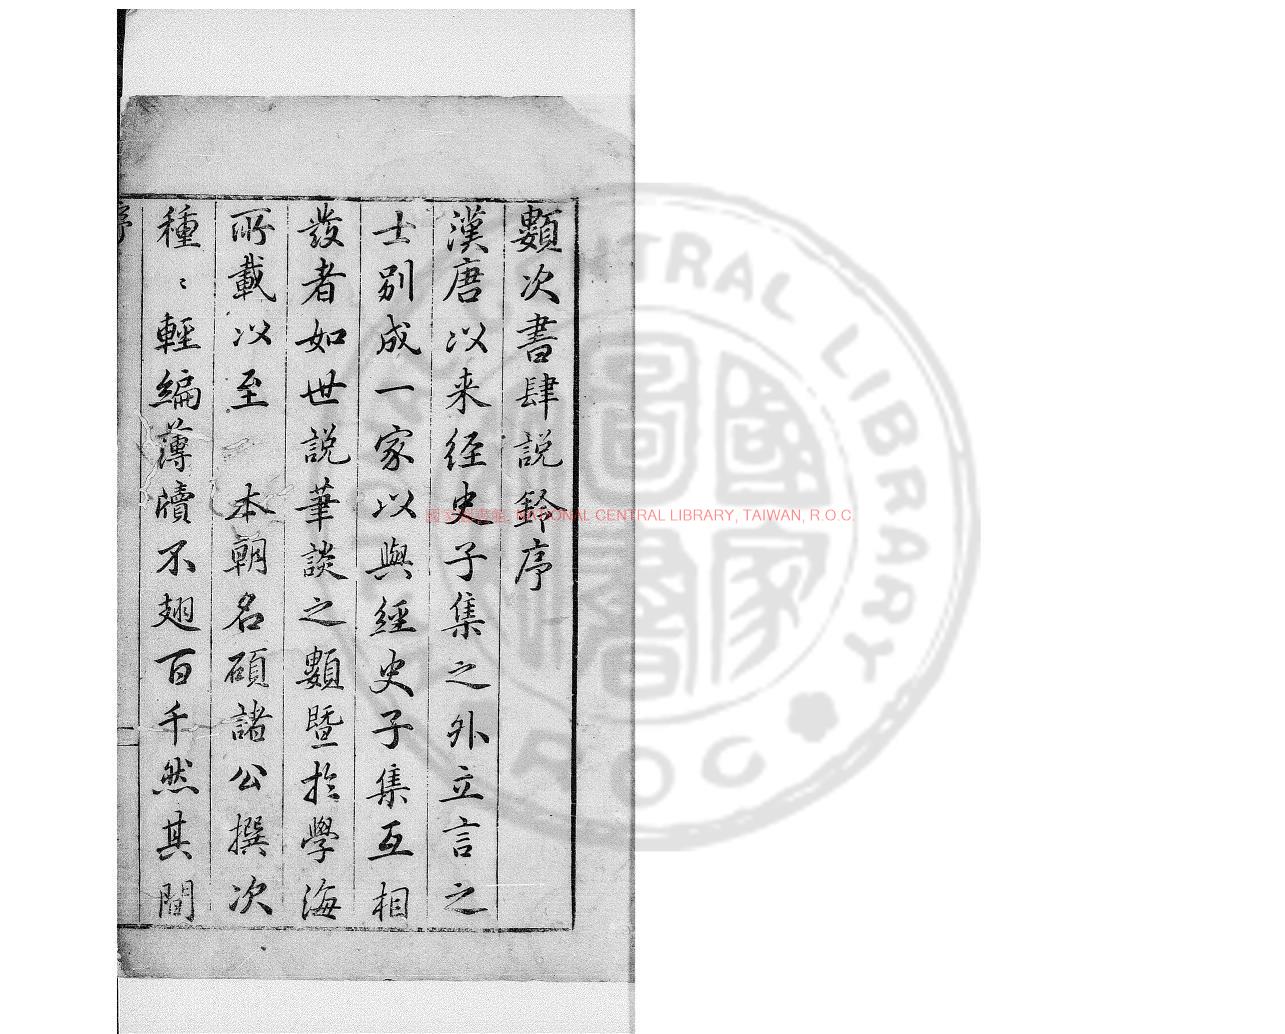 類次書肆説鈴序
漢唐以来经史子集之外立言之
士别成一家以與經史子集互相
發者如世説筆談之類暨扵學海
所載以至 本朝名碩諸公撰次
種〻輕編薄牘不翅百千然其間
序
國家圖書館, NATIONAL CENTRAL LIBRARY, TAIWAN, R.O.C.